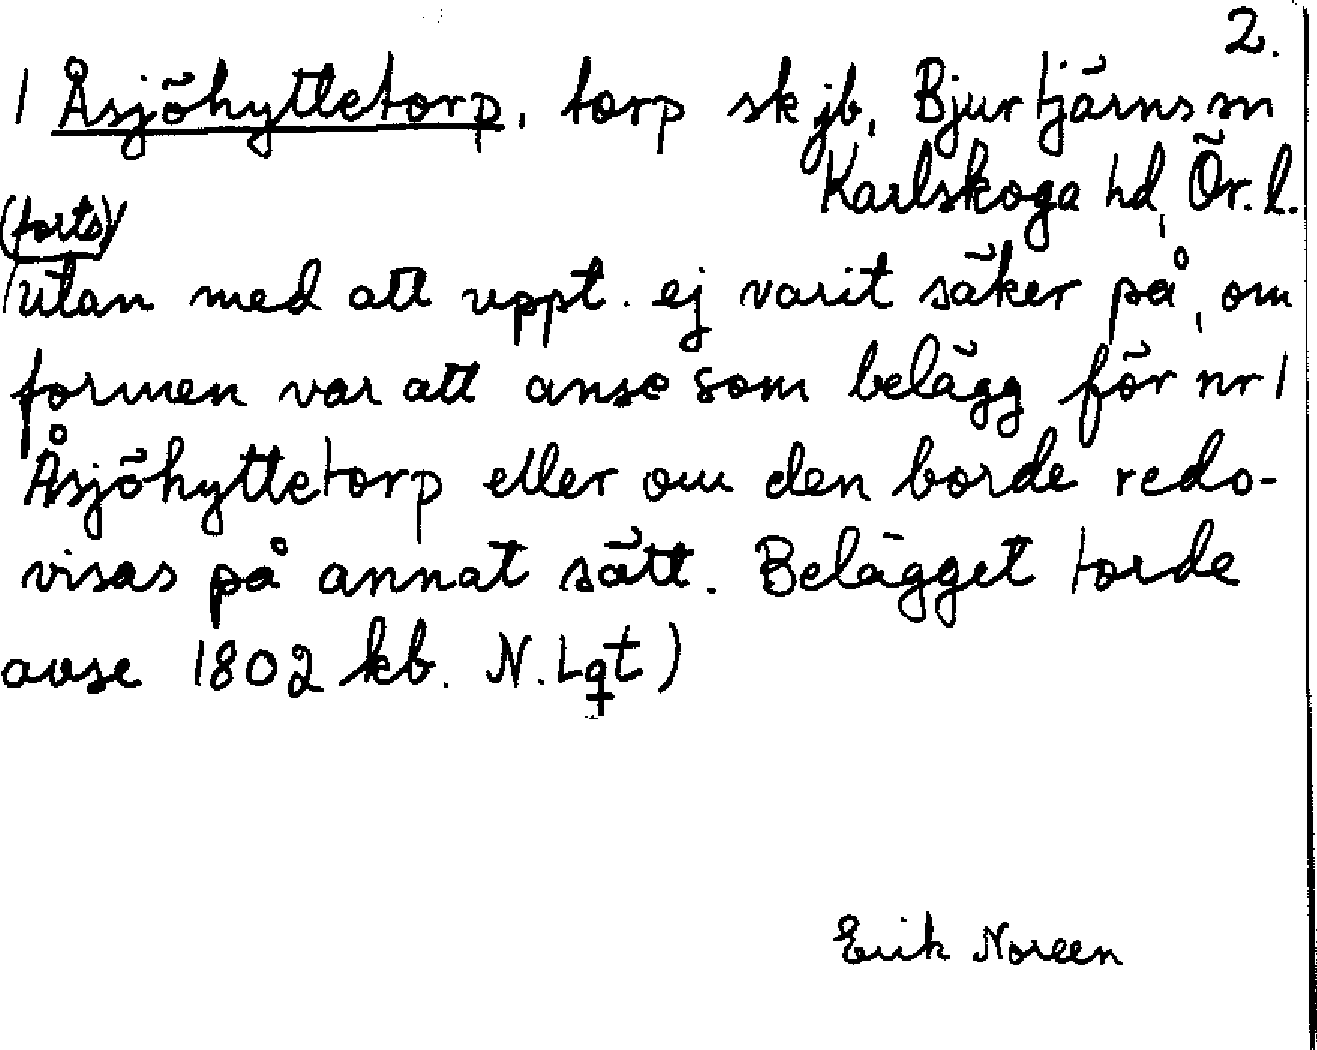 2.
1 Åsjöhyttetorp, torp sk jb, Bjurtjärns sn
Karlskoga hd, Ör. l.
(forts)
utan med att uppt. ej varit säker på, om
formen var att anse som belägg för nr 1
Åsjöhyttetorp eller om den borde redo-
visas på annat sätt. Belägget torde
avse 1802 kb. N. Lgt)
Erik Noreen